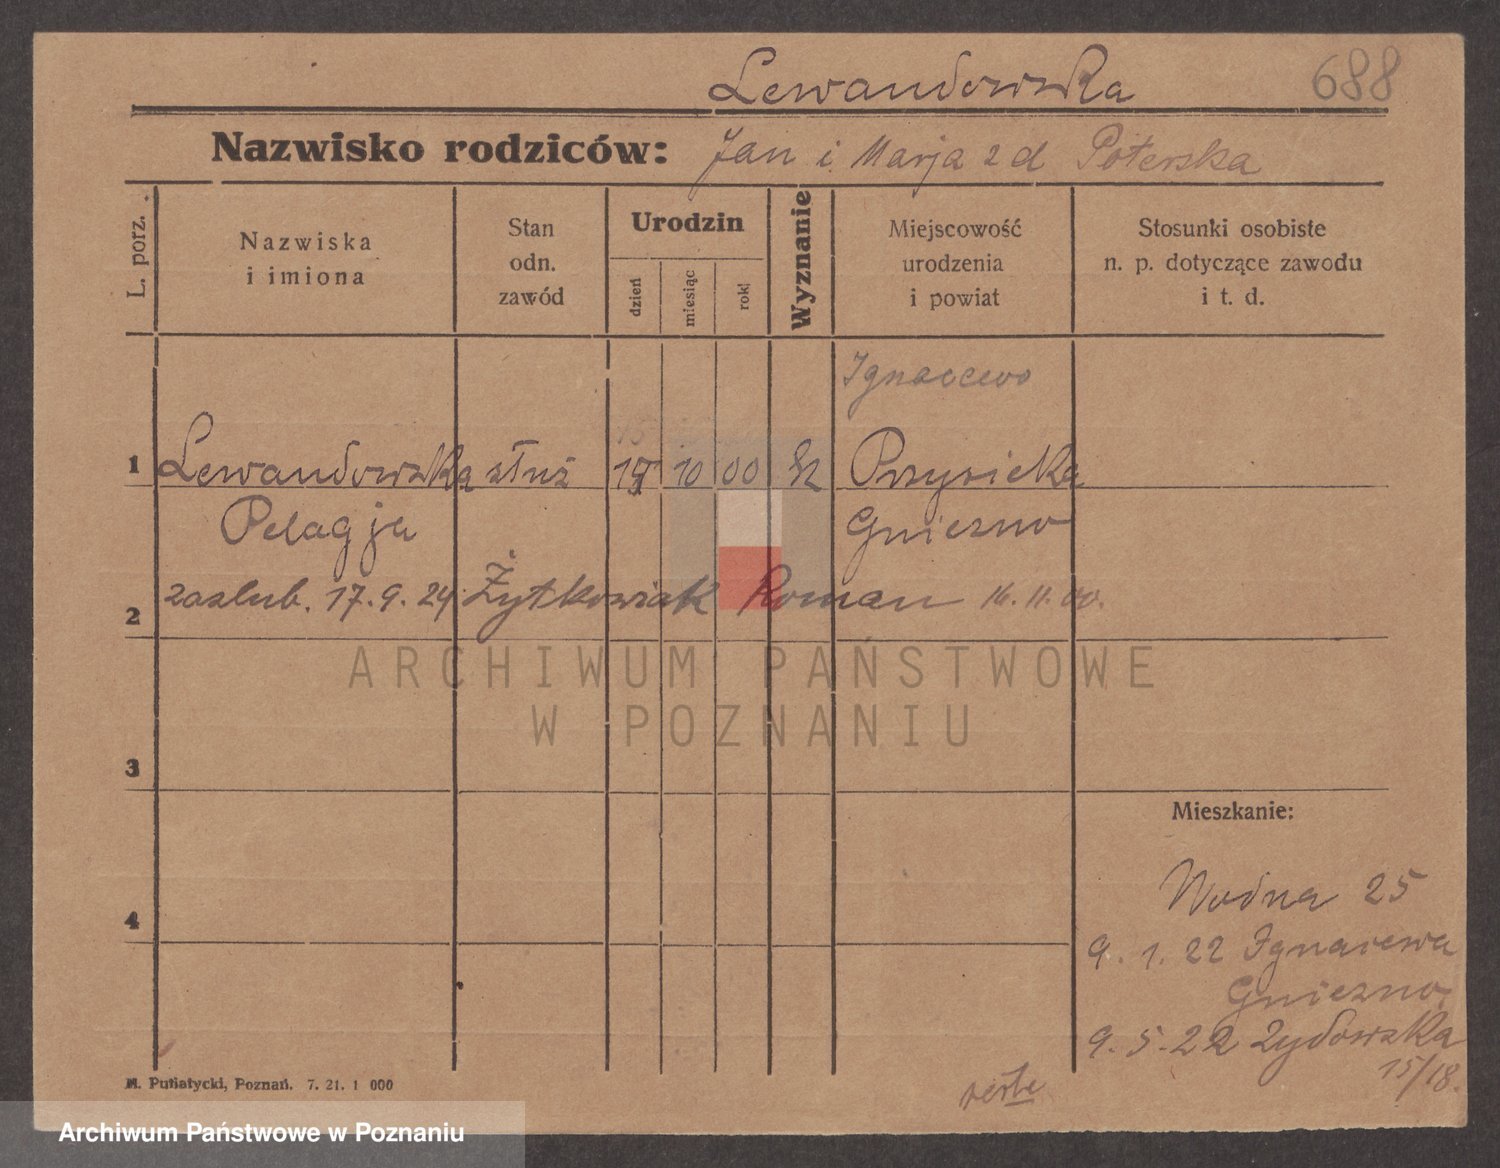 Lewandowska 688
Nazwisko rodziców: Jan i Marja z d Poterska
L. porz.
Nazwiska
i imiona
Stan
odn.
zawód
Urodzin
dzień
miesiąc
rok
Wyznanie
Miejscowość
urodzenia
i powiat
Stosunki osobiste
n. p. dotyczące zawodu
i t. d.
Ignacewo
1 Lewandowska służ 10 00 Przysieka
Pelagja Gniezno
2 zaslub. 17.9.24 Żytkowiak Roman 16.11.00.
ARCHIWUM PAŃSTWOWE
W POZNANIU
3
Mieszkanie:
Wodna 25
4
9.1.22 Ignacewa
Gniezno.
9.5.22 Zydowska
15/18.
M. Putiatycki, Poznań. 7. 21. 1 000
Archiwum Państwowe w Poznaniu